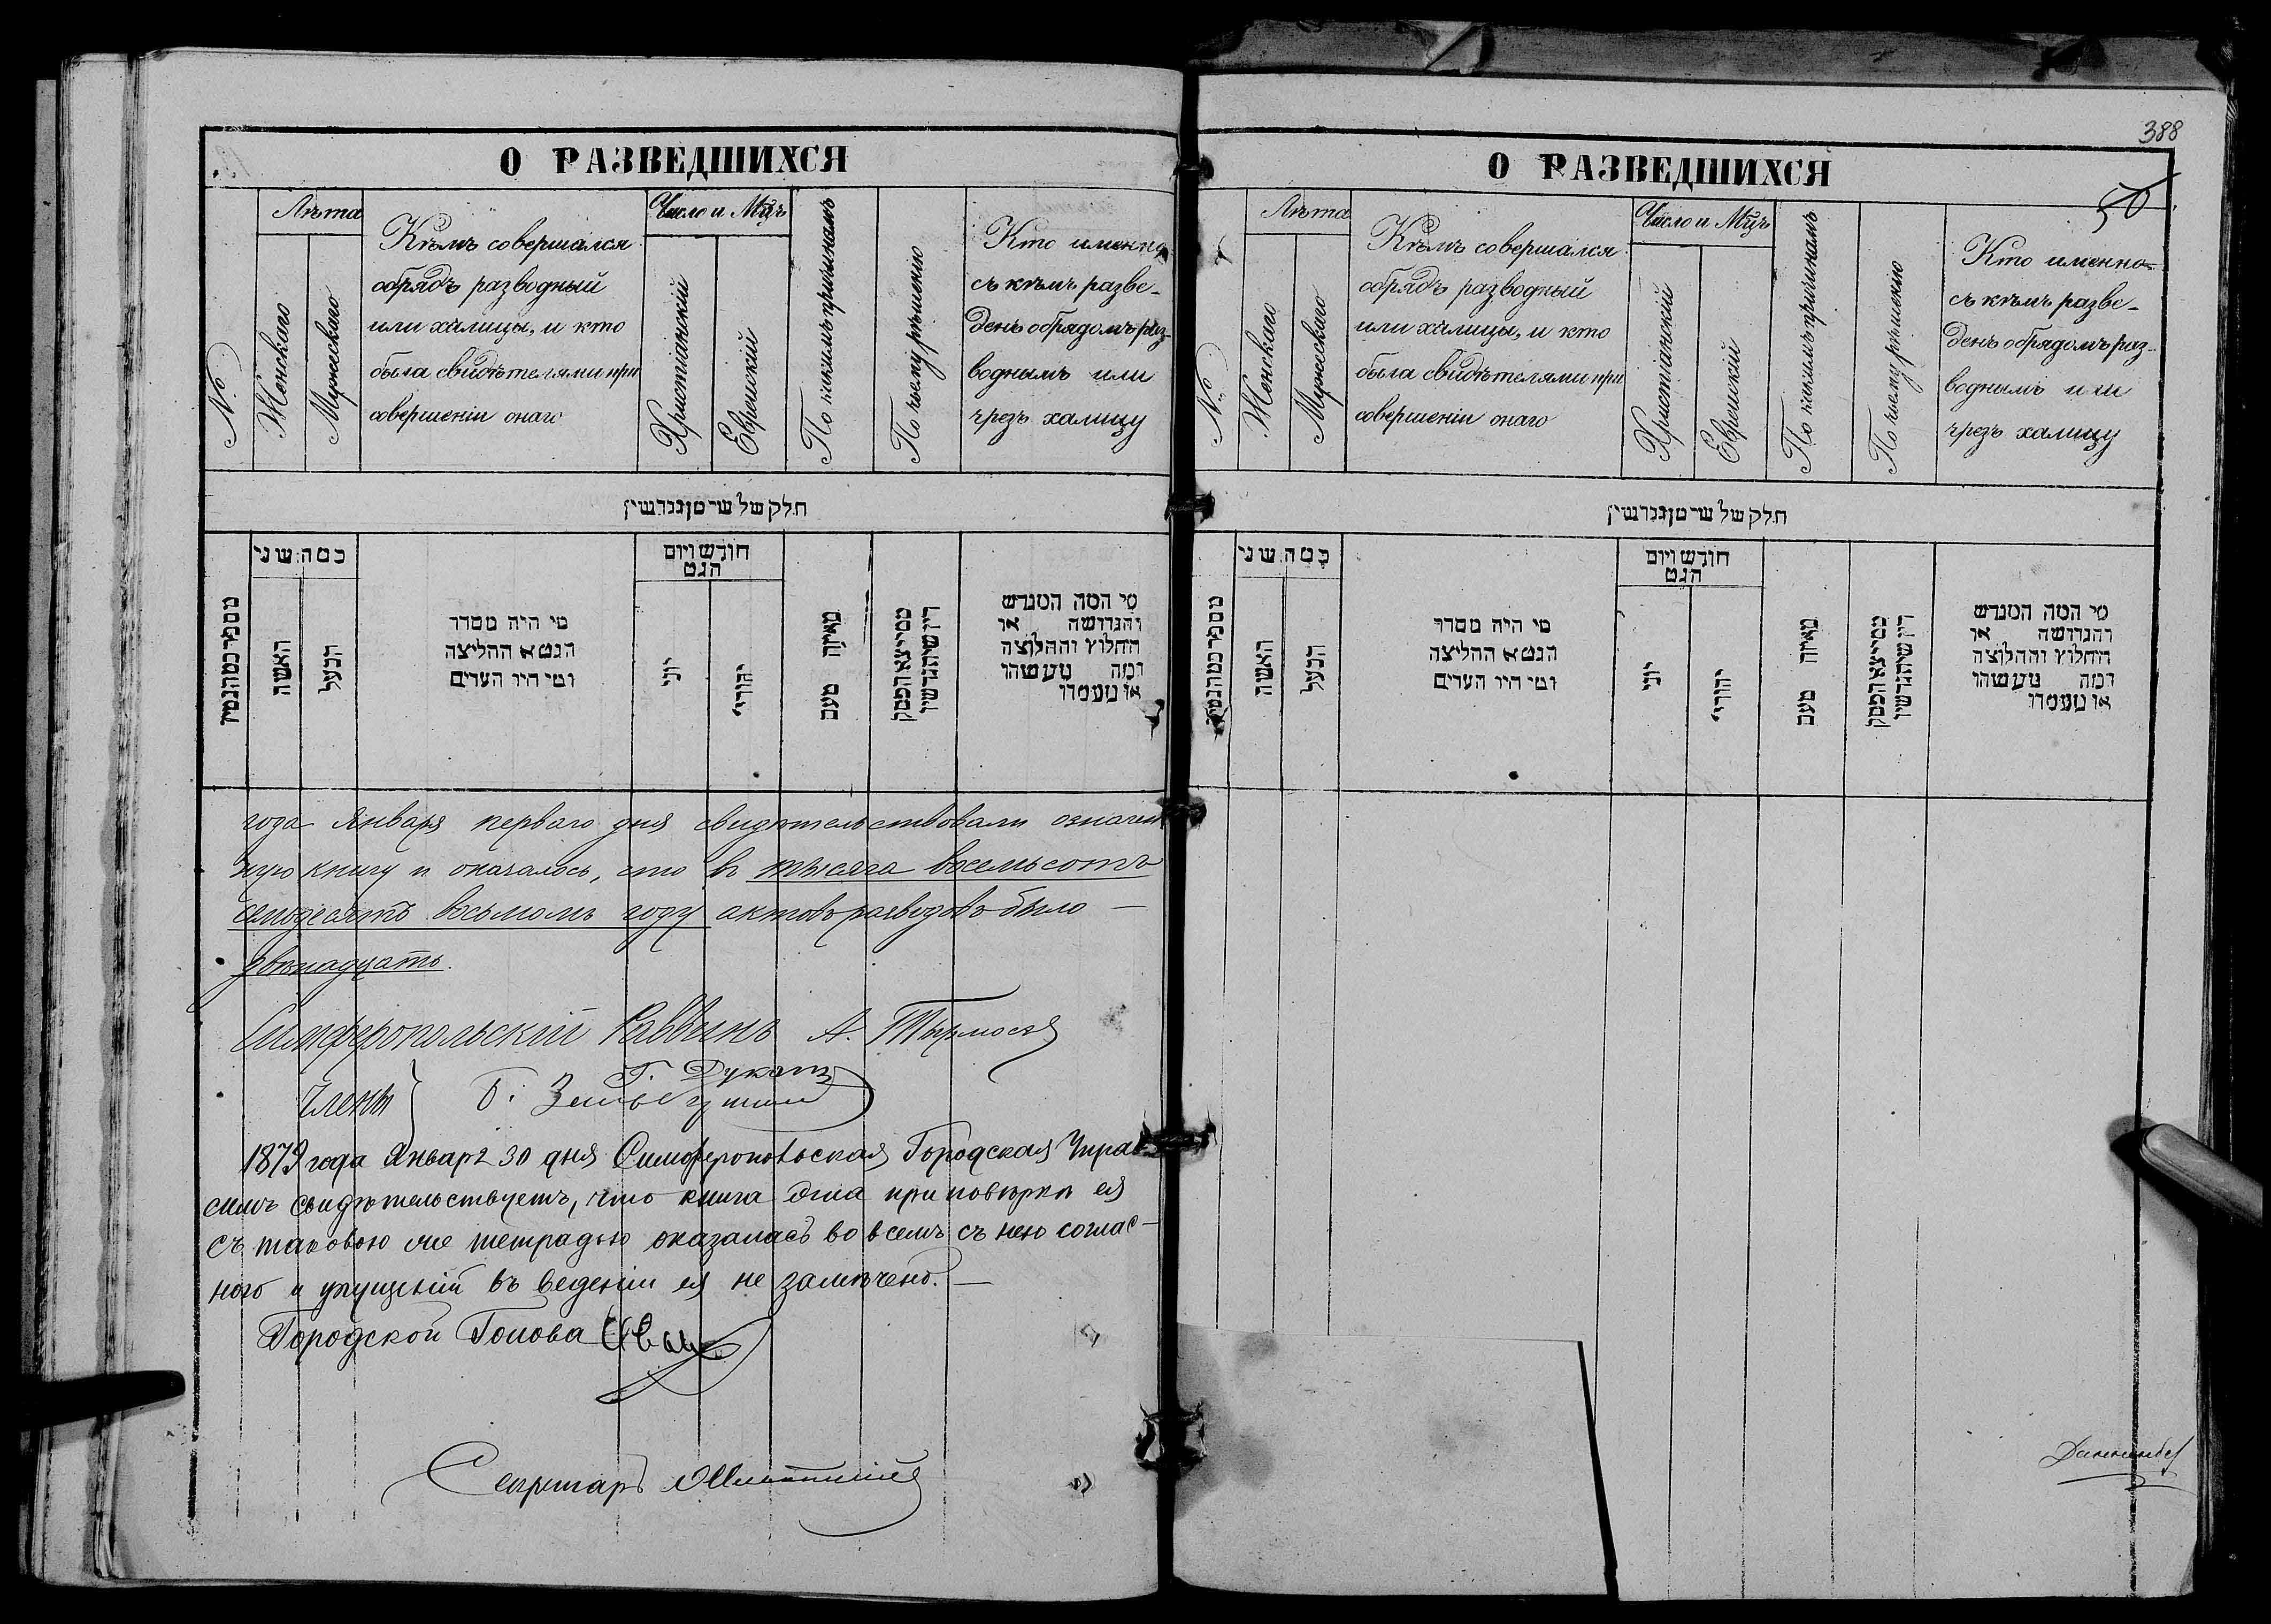 О РАЗВЕДШИХСЯ
№
Лѣта
Женскаго
Мужескаго
Кѣмъ совершался
обрядъ разводный
или халицы, и кто
была свидѣтелями при
совершеніи онаго
Число и Мцъ
Христіанскій
Еврейскій
По какимъ причинамъ
По чьему рѣшенію
Кто именно
съ кѣмъ разве-
денъ обрядомъ раз-
воднымъ или
чрезъ халицу
חלק של שי מן גגרשין
כמה שני
האשה
הבעל
מי היה מסדר
הגט א החליצה
ומי היו העדים
חודש ויום
הגט
יוני
יהודי
מאיזה טעם
מי המה המגרש
והגרושה או
החלוץ והחלוצה
ומה מעשהו
או מעמדו
года Января перваго дня свидѣтельствовали означен
ную книгу и оказалось, что в тысяча восемьсотъ
семдесятъ восьмомъ году актовъ разводовъ было —
двѣнадцать.
Симферопольскій Раввинъ А.
Г. Дукатъ
Члены } Б.
1879 года Января 30 дня Симферопольская Городская Управа
симъ свидѣтельствуетъ, что книга эта при повѣркѣ ея
съ таковою же тетрадью оказалась во всемъ съ нею соглас-
ного и упущеній въ веденіи ея не замѣчено. —
Городской Голова Иван
Секретарь
388
50
О РАЗВЕДШИХСЯ
№
Лѣта
Женскаго
Мужескаго
Кѣмъ совершался
обрядъ разводный
или халицы, и кто
была свидѣтелями при
совершеніи онаго
Число и Мцъ
Христіанскій
Еврейскій
По какимъ причинамъ
По чьему рѣшенію
Кто именно
съ кѣмъ разве-
денъ обрядомъ раз-
воднымъ или
чрезъ халицу
חלק של שי מן גגרשין
כמה שני
האשה
הבעל
מי היה מסדר
הגט א החליצה
ומי היו העדים
חודש ויום
הגט
יוני
יהודי
מאיזה טעם
מי המה המגרש
והגרושה או
החלוץ והחלוצה
ומה מעשהו
או מעמדו